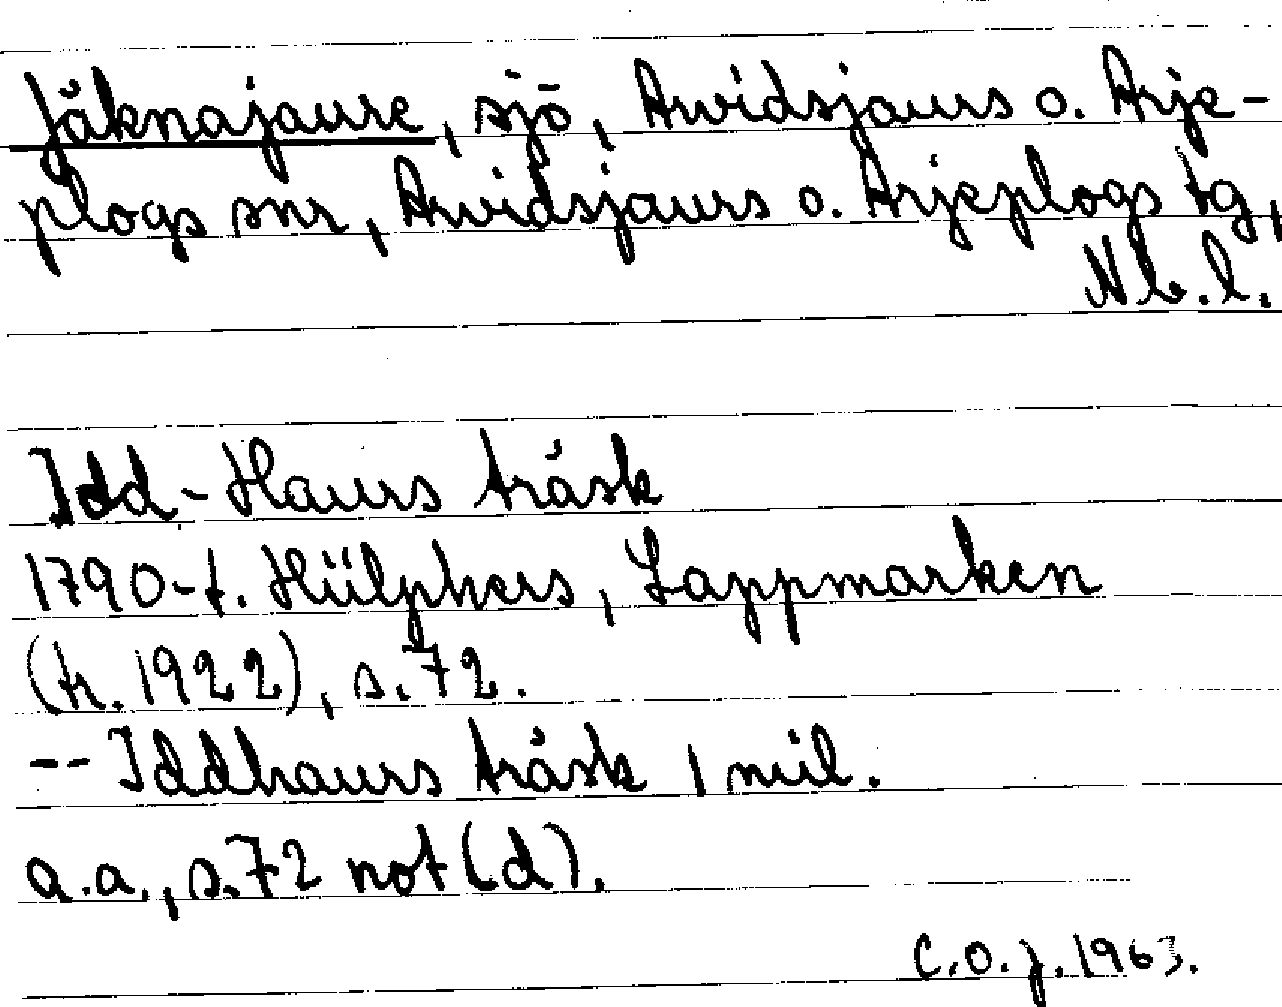 Jäknajaure, sjö, Arvidsjaurs o. Arje-
plogs snr, Arvidsjaurs o. Arjeplogs tg,
Nb.l.
Idd-Haurs träsk
1790-t. Hülphers, Lappmarken
(tr. 1922), s.72.
-- Iddhaurs träsk 1 mil.
a.a., s.72 not (d).
C.O.J. 1963.